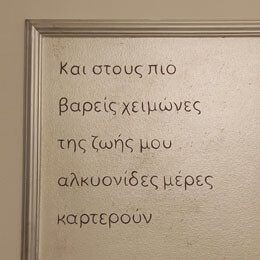 Και στους πιο
βαρείς χειμώνες
της ζωής μου
αλκυονίδες μέρες
καρτερούν